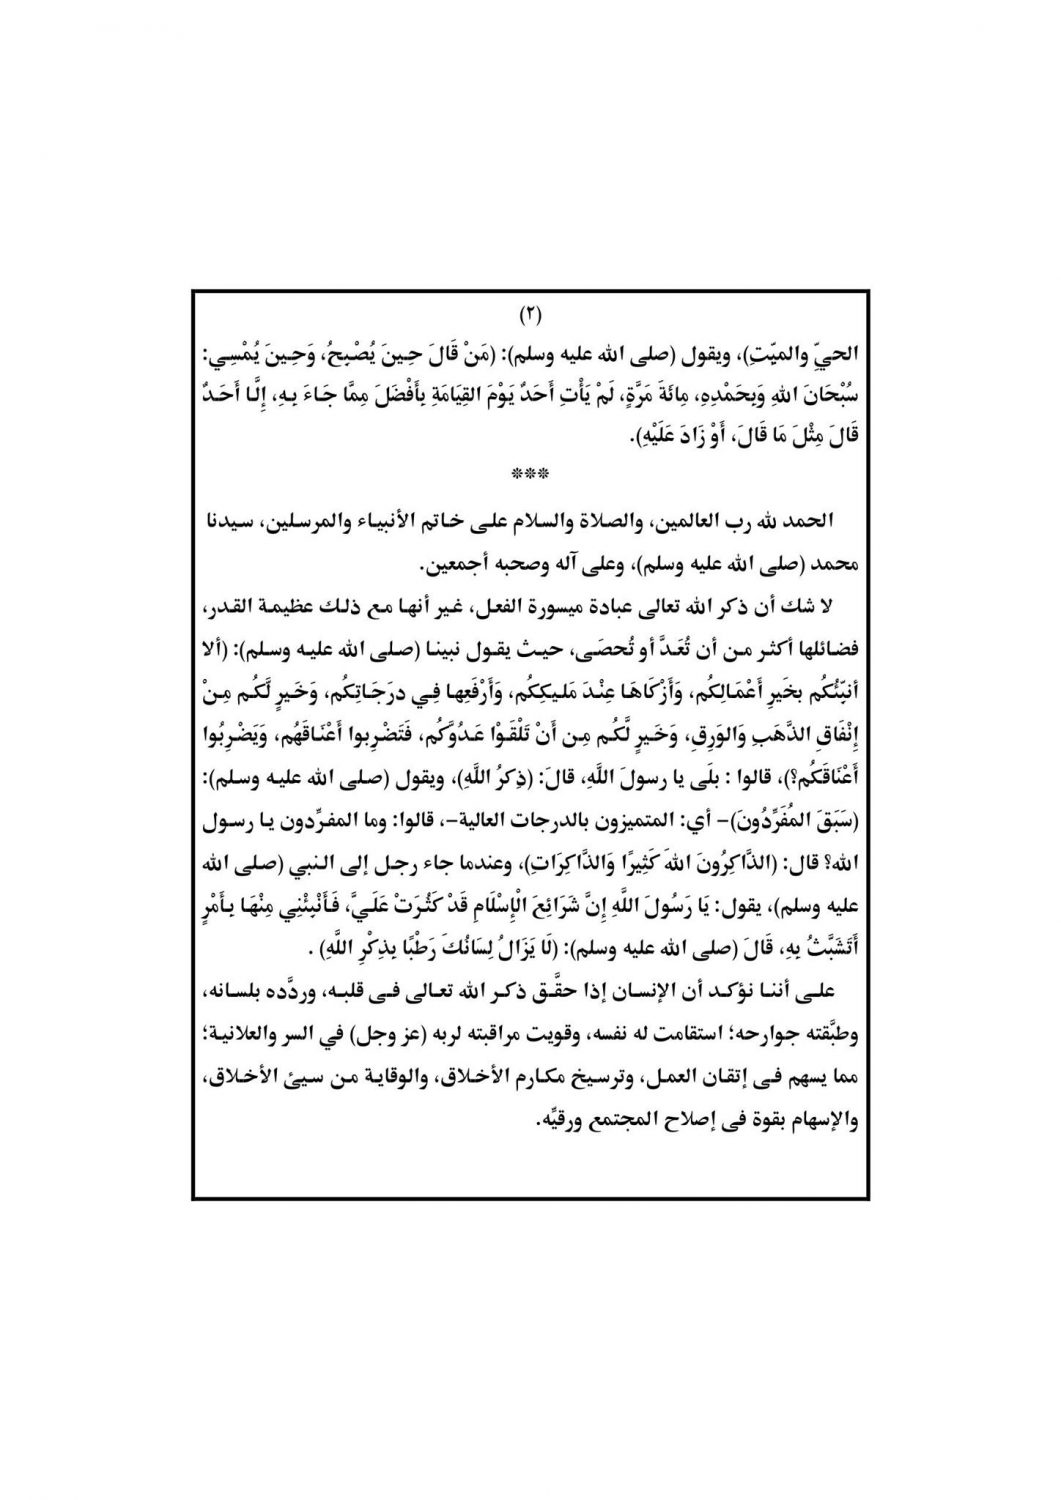 (٢)
الحيِّ والميّتِ)، ويقول (صلى الله عليه وسلم): (مَنْ قَالَ حِينَ يُصْبِحُ، وَحِينَ يُمْسِي:
سُبْحَانَ اللهِ وَبِحَمْدِهِ، مِائَةَ مَرَّةٍ، لَمْ يَأْتِ أَحَدٌ يَوْمَ القِيَامَةِ بِأَفْضَلَ مِمَّا جَاءَ بِهِ، إِلَّا أَحَدٌ
قَالَ مِثْلَ مَا قَالَ، أَوْ زَادَ عَلَيْهِ).
***
الحمد لله رب العالمين، والصلاة والسلام على خاتم الأنبياء والمرسلين، سيدنا
محمد (صلى الله عليه وسلم)، وعلى آله وصحبه أجمعين.
لا شك أن ذكر الله تعالى عبادة ميسورة الفعل، غير أنها مع ذلك عظيمة القدر،
فضائلها أكثر من أن تُعَدَّ أو تُحصَى، حيث يقول نبينا (صلى الله عليه وسلم): (ألا
أنبّئُكُم بخَيرِ أعْمَالِكُم، وَأَزْكَاهَا عِنْدَ مَليكِكُم، وَأَرْفَعِها فِي درَجَاتِكُم، وَخَيرٍ لَّكُم مِنْ
إنْفَاقِ الذَّهَبِ وَالوَرِقِ، وَخَيرٍ لَّكُم مِن أَنْ تَلْقَوْا عَدُوَّكُم، فَتَضْرِبوا أَعْنَاقَهُم، وَيَضْرِبُوا
أَعْنَاقَكُم؟)، قالوا : بلَى يا رسولَ اللَّهِ، قالَ: (ذِكرُ اللَّهِ)، ويقول (صلى الله عليه وسلم):
(سَبَقَ المُفَرِّدُونَ)- أي: المتميزون بالدرجات العالية-، قالوا: وما المفرِّدون يا رسول
الله؟ قال: (الذَّاكِرُونَ اللهَ كَثِيرًا وَالذَّاكِرَاتِ)، وعندما جاء رجل إلى النبي (صلى الله
عليه وسلم)، يقول: يَا رَسُولَ اللَّهِ إِنَّ شَرَائِعَ الْإِسْلَامِ قَدْ كَثُرَتْ عَلَيَّ، فَأَنْبِئْنِي مِنْهَا بِأَمْرٍ
أَتَشَبَّثُ بِهِ، قَالَ (صلى الله عليه وسلم): (لَا يَزَالُ لِسَانُكَ رَطْبًا بِذِكْرِ اللَّهِ) .
على أننا نؤكد أن الإنسان إذا حقَّق ذكر الله تعالى فى قلبه، وردَّده بلسانه،
وطبَّقته جوارحه؛ استقامت له نفسه، وقويت مراقبته لربه (عز وجل) في السر والعلانية؛
مما يسهم فى إتقان العمل، وترسيخ مكارم الأخلاق، والوقاية من سيئ الأخلاق،
والإسهام بقوة فى إصلاح المجتمع ورقيِّه.